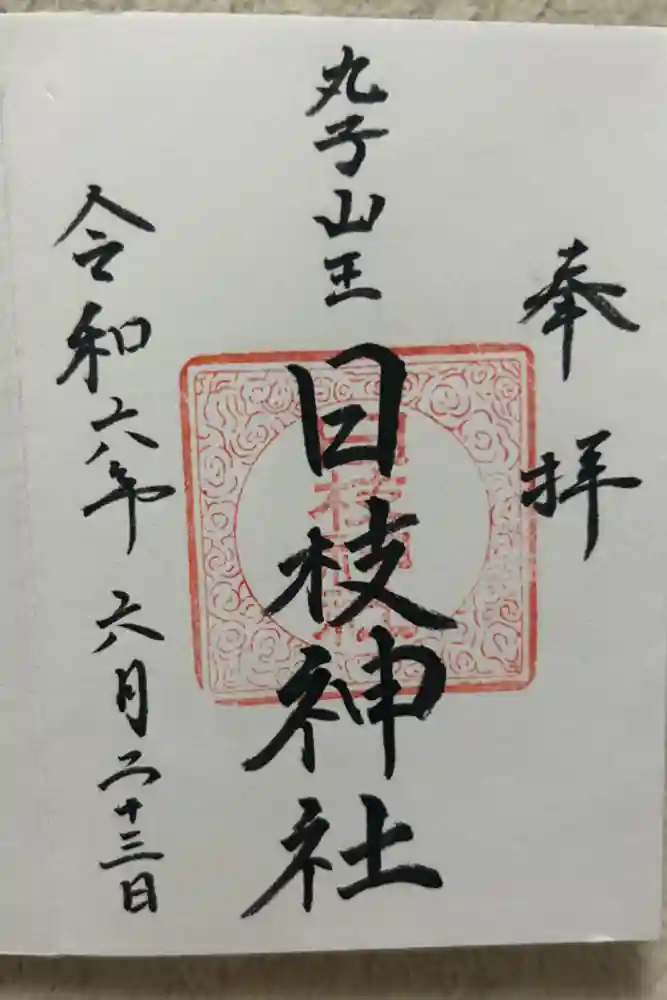 奉拝
丸子山王
日枝神社
日枝神社
令和六年六月二十三日